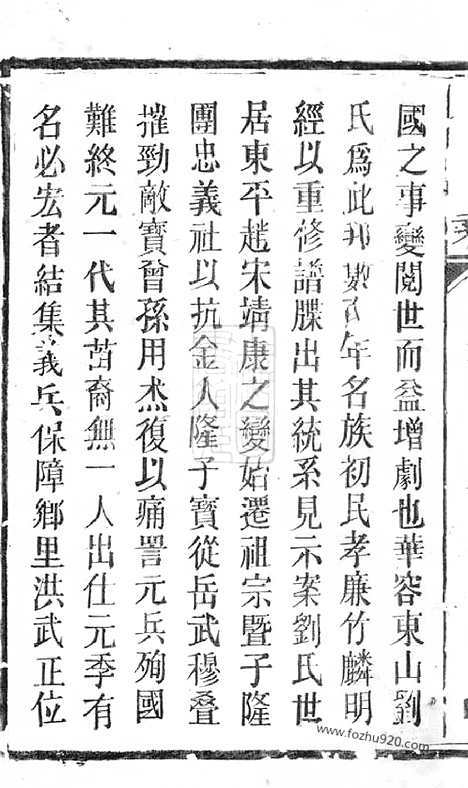 國之事變閱世而益增劇也華容東山劉
氏爲此邦數百年名族初民孝廉竹麟明
經以重修譜牒出其統系見示案劉氏世
居東平趙宋靖康之變始遷祖宗暨子隆
團忠義社以抗金人隆子寶從岳武穆叠
摧勁敵寶曾孫用杰復以痛詈元兵殉國
難終元一代其苗裔無一人出仕元季有
名必宏者結集義兵保障鄉里洪武正位
www.fozhu920.com